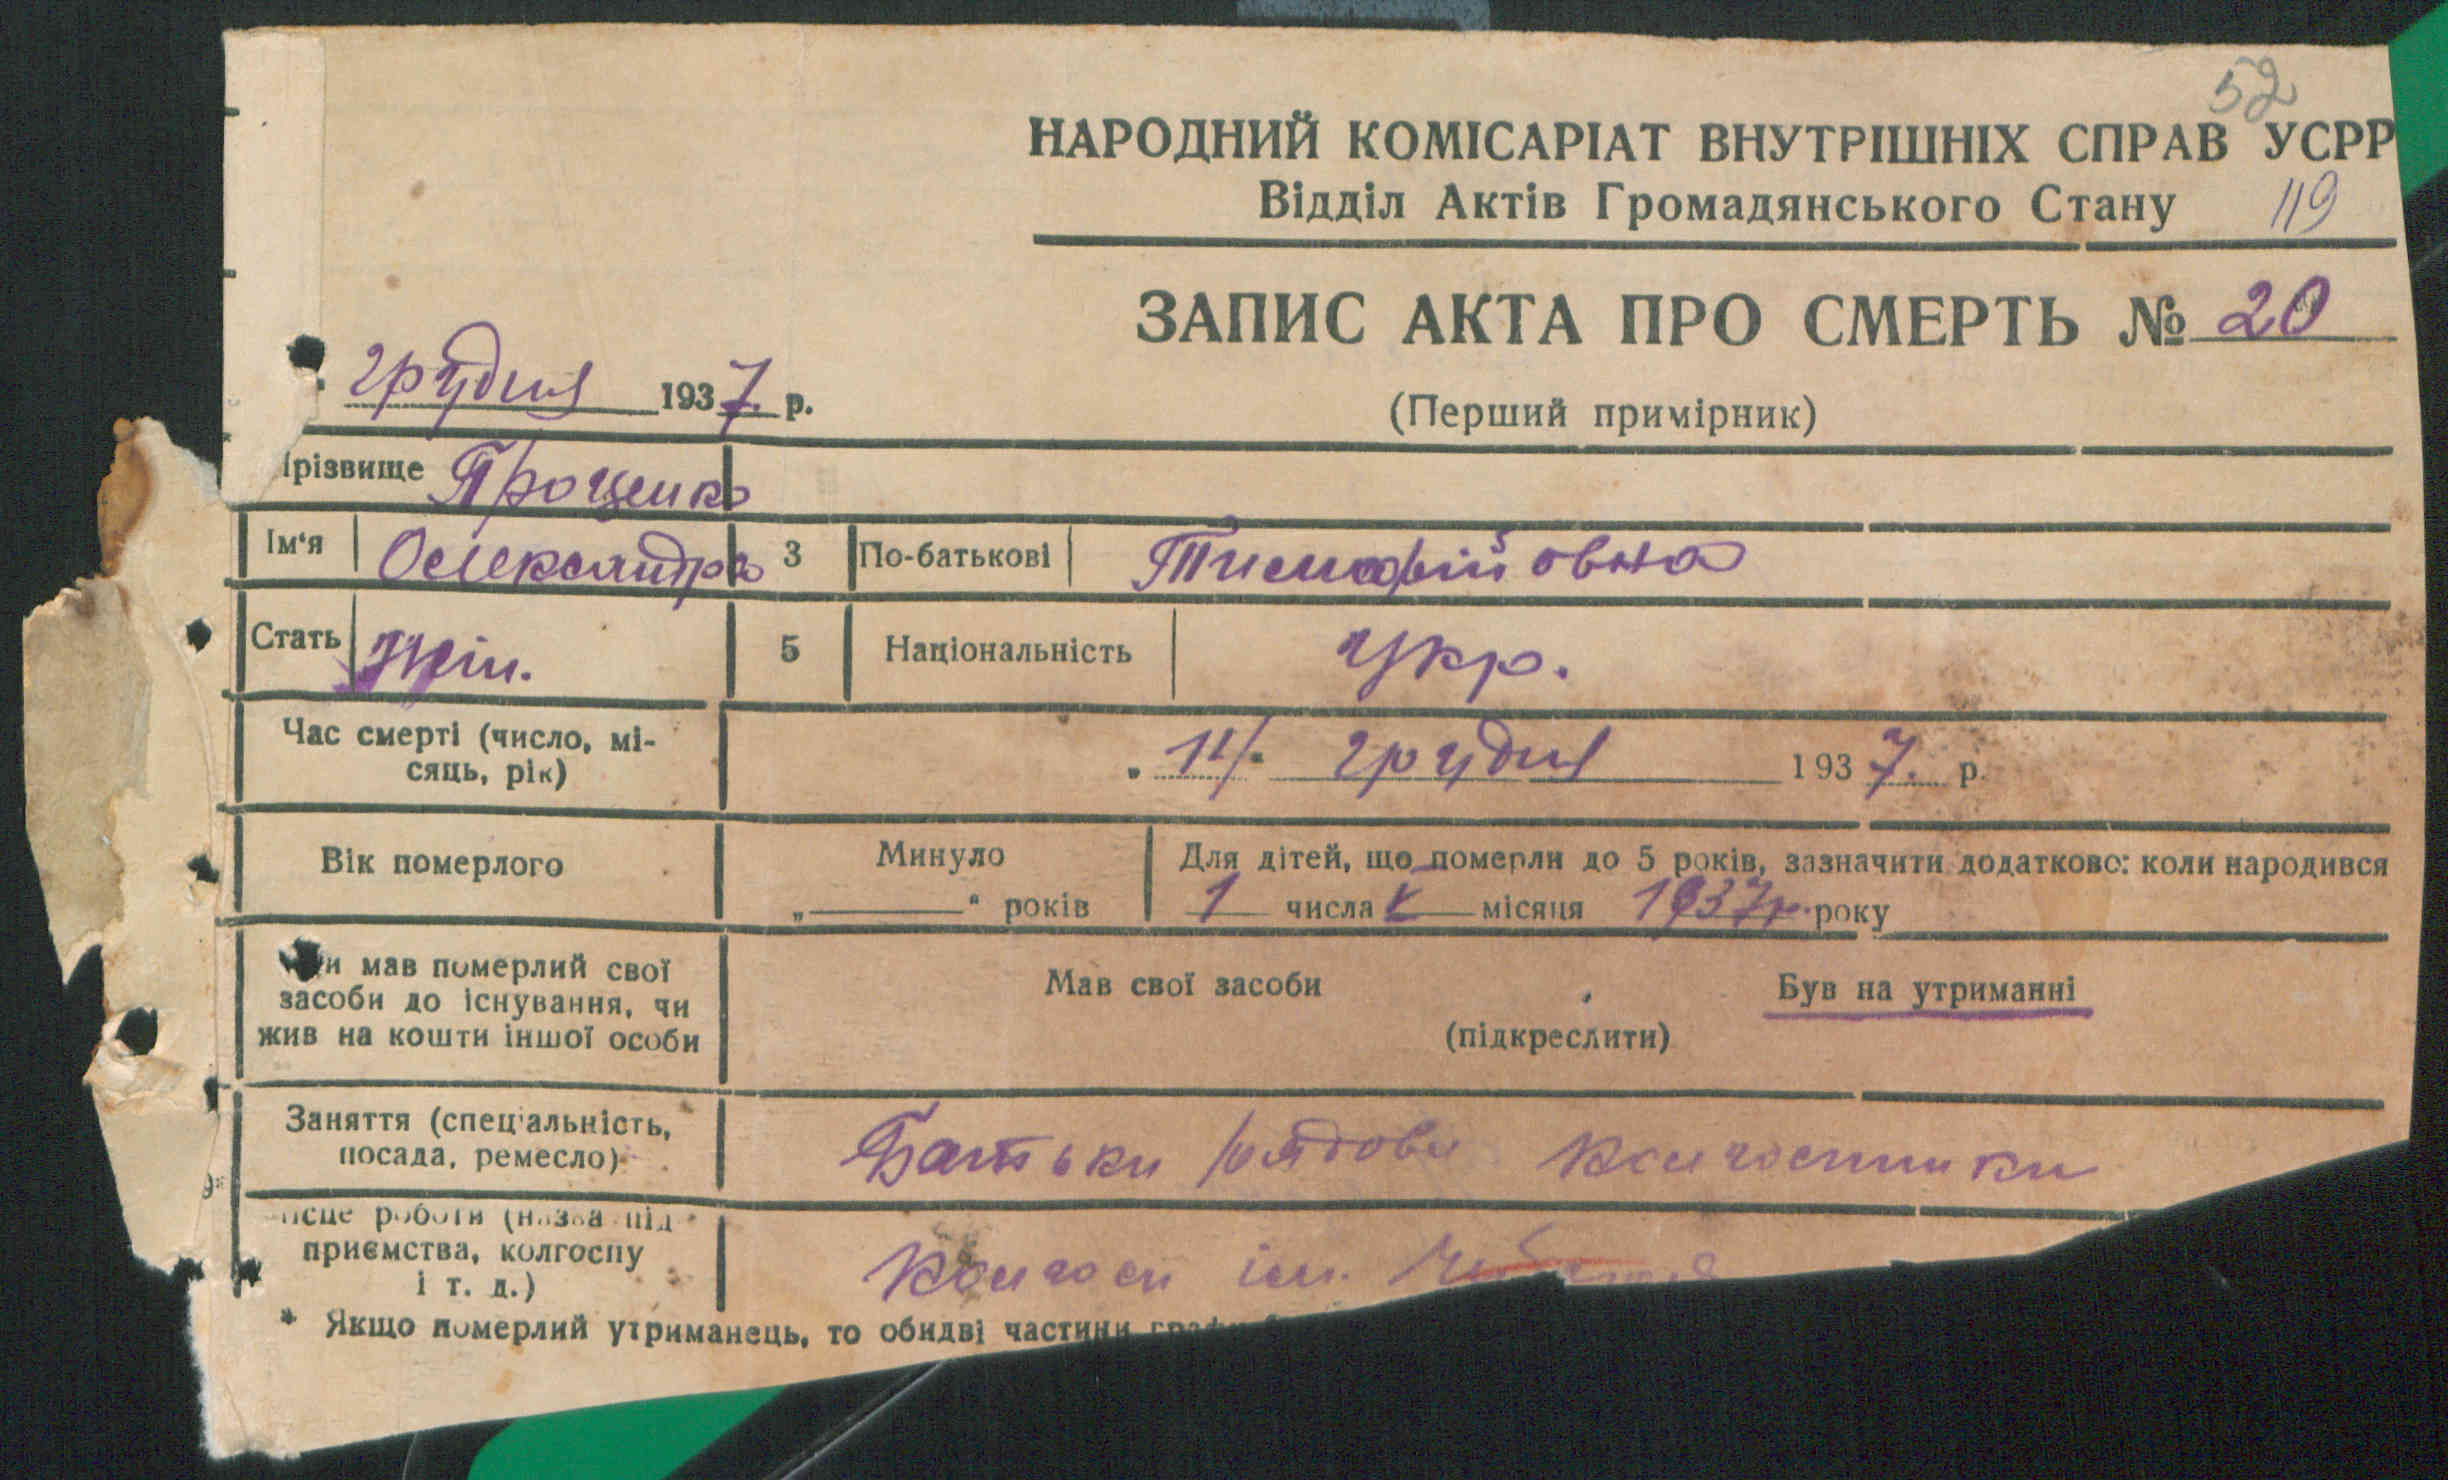 52
НАРОДНИЙ КОМІСАРІАТ ВНУТРІШНІХ СПРАВ УСРР
Відділ Актів Громадянського Стану 119
ЗАПИС АКТА ПРО СМЕРТЬ № 20
грудня 1937 р.
(Перший примірник)
різвище Проценко
Ім'я Олександра 3 По-батькові Тимофійовна
Стать Жін. 5 Національність Укр.
Час смерті (число, мі-
сяць, рік)
грудня 1937. р.
Вік померлого
Минуло
„—“ років
Для дітей, що померли до 5 років, зазначити додатково: коли народився
1 числа місяця 1937 р. року
и мав померлий свої
засоби до існування, чи
жив на кошти іншої особи
Мав свої засоби Був на утриманні
(підкреслити)
Заняття (спеціальність,
посада, ремесло)
Батьки рядові колгоспники
ісце роботи (назва під
приємства, колгоспу
і т. д.)
Колгосп ім.
* Якщо померлий утриманець, то обидві частини